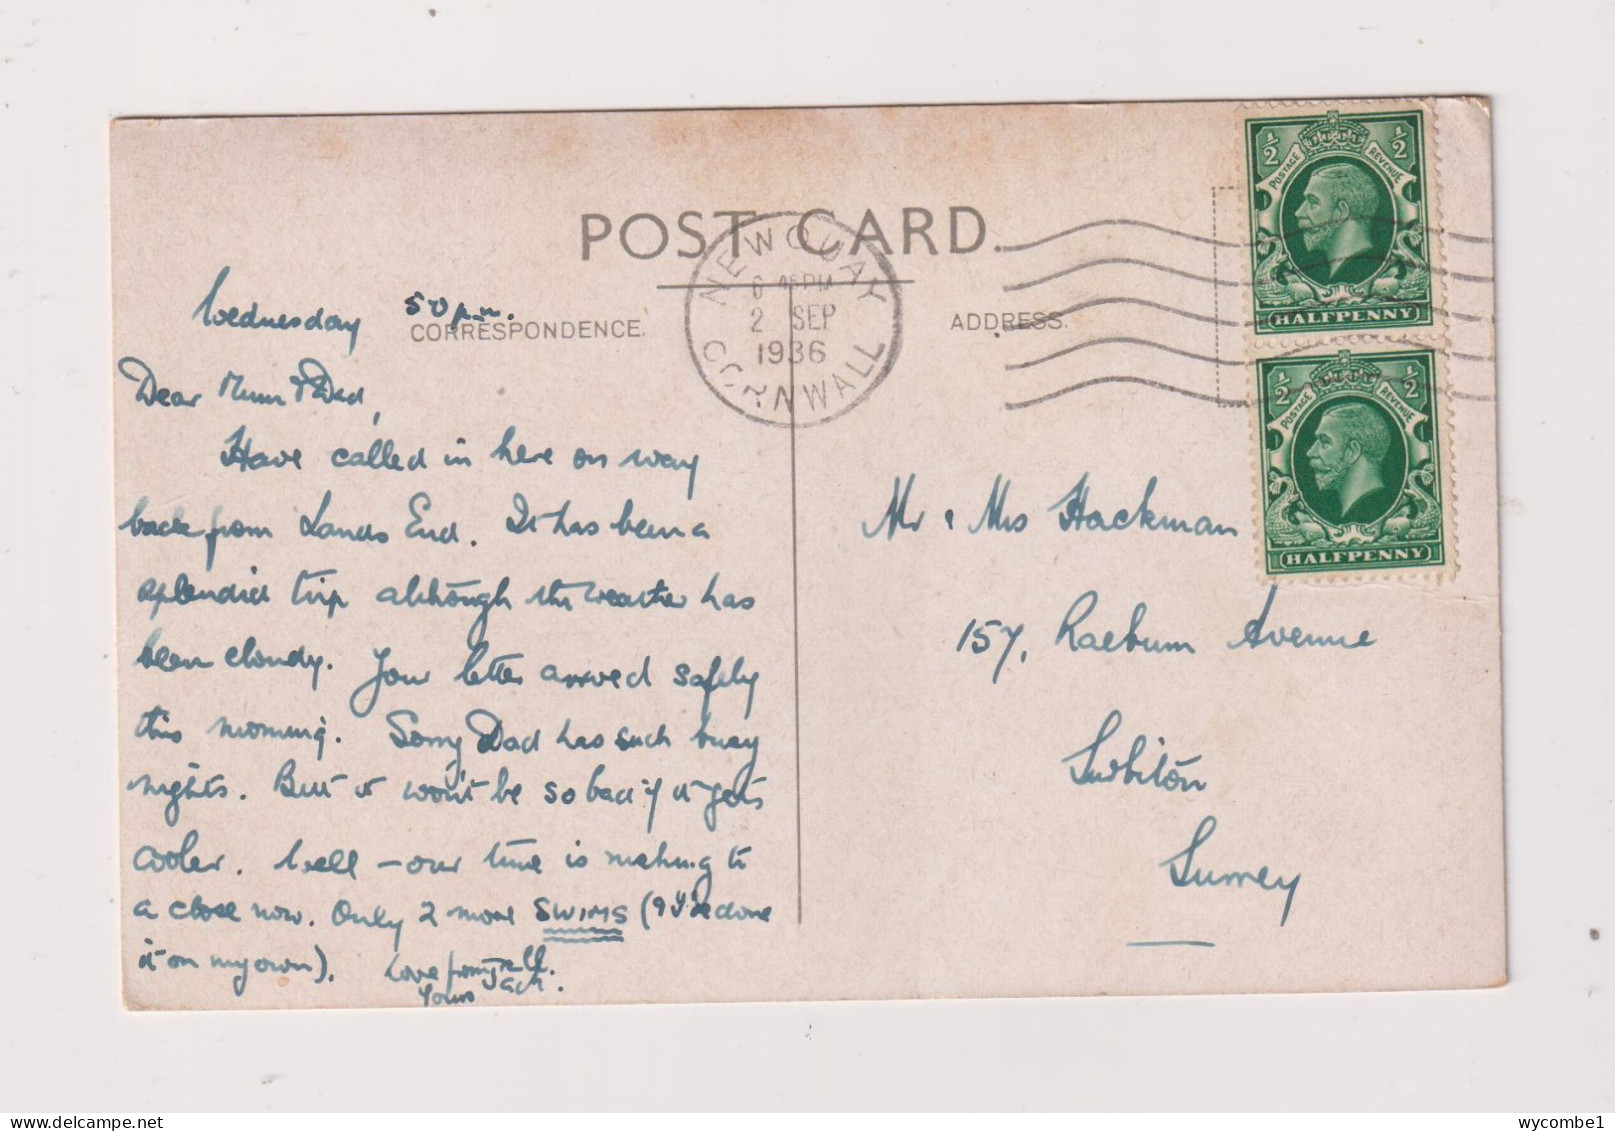 POST CARD.
NEWQUAY
6 45 PM
2 SEP
1936
CORNWALL
CORRESPONDENCE.
ADDRESS.
1/2 1/2
POSTAGE REVENUE
HALFPENNY
1/2 1/2
POSTAGE REVENUE
HALFPENNY
Wednesday 50 p.m.
Dear Mum & Dad,
Have called in here on way
back from Lands End. It has been a
splendid trip although the weather has
been cloudy. Your letter arrived safely
this morning. Sorry Dad has such busy
nights. But it won't be so bad if it gets
cooler. Well – our time is making to
a close now. Only 2 more SWIMS (& I've done
it on my own). Love from all.
Yours Jack.
Mr & Mrs Hackman
157, Raeburn Avenue
Surbiton
Surrey
wycombe1